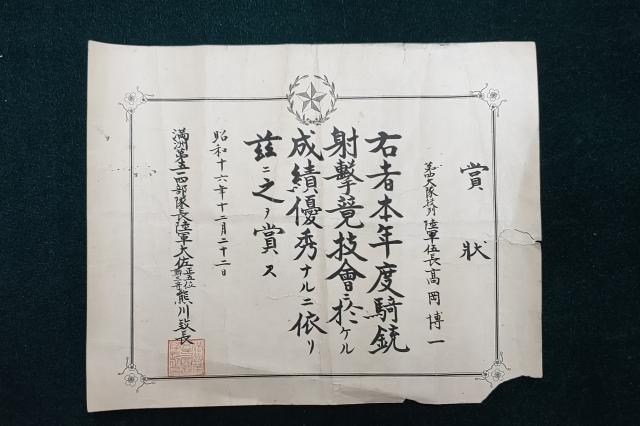 賞狀
第四大隊段列陸軍伍長高岡博一
右者本年度騎銃
射擊競技會ニ於ケル
成績優秀ナルニ依リ
茲ニ之ヲ賞ス
昭和十六年十二月二十二日
滿洲第五一四部隊長陸軍大佐正五位熊川致長